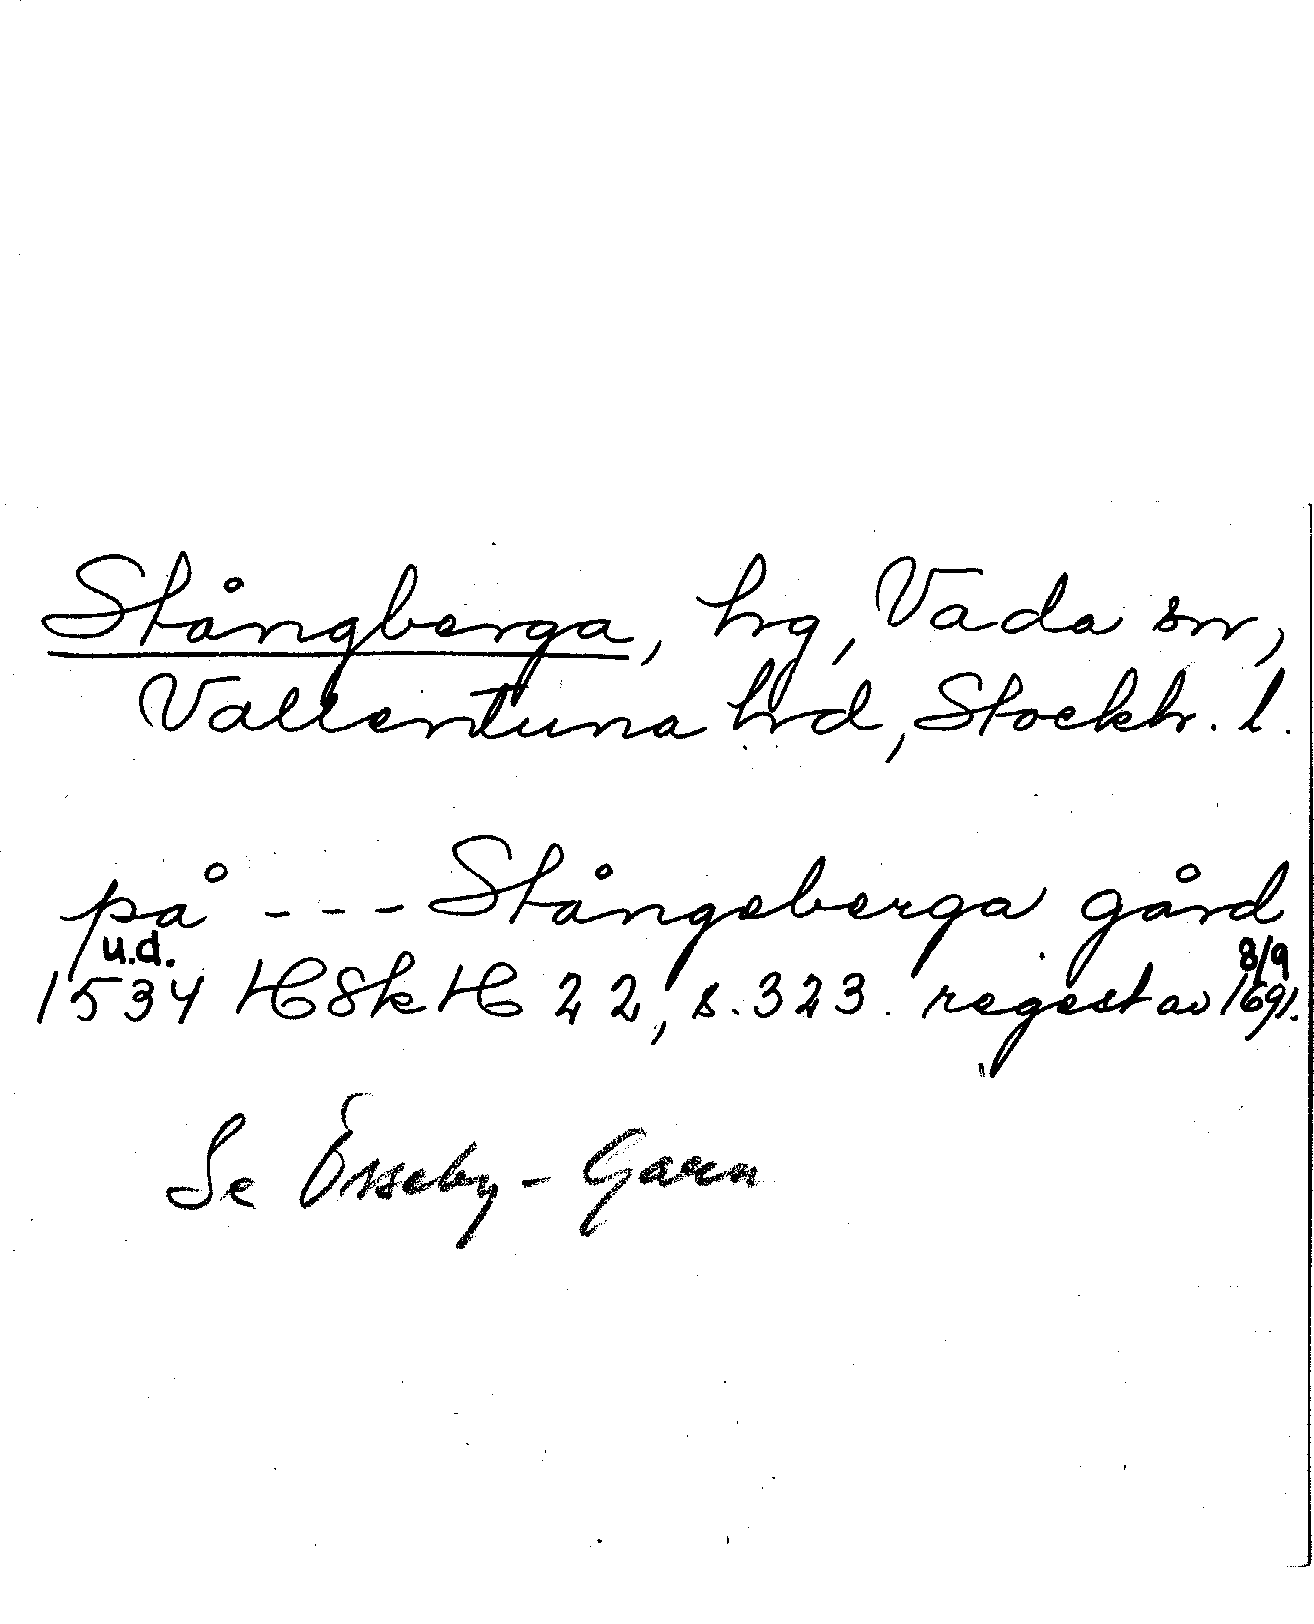 Stångberga, hg, Vada sn,
Vallentuna hd, Stockh. l.
på --- Stångeberga gård
u.d. 8/9
1534 HSkH 22, s. 323. regest av 1691.
Se Össeby-Garn